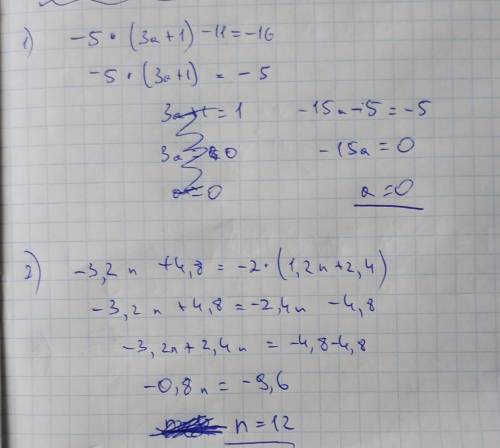 1) -5 • (3a+1) -11=-16
-5 • (3a+1) = -5
3a+1=1 -15a-5=-5
3a=0 -15a=0
a=0 a=0
2) -3,2n +4,8=-2•(1,2n+2,4)
-3,2n +4,8=-2,4n -4,8
-3,2n+2,4n = -4,8-4,8
-0,8n=-9,6
n=12